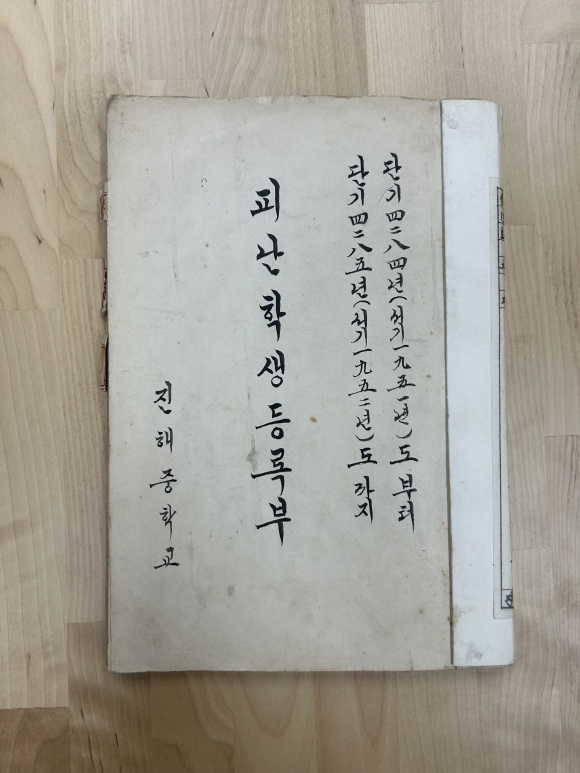 단기四二八四년(서기一九五一년)도 부터
단기四二八五년(서기一九五二년)도 까지
피난학생등록부
진해중학교